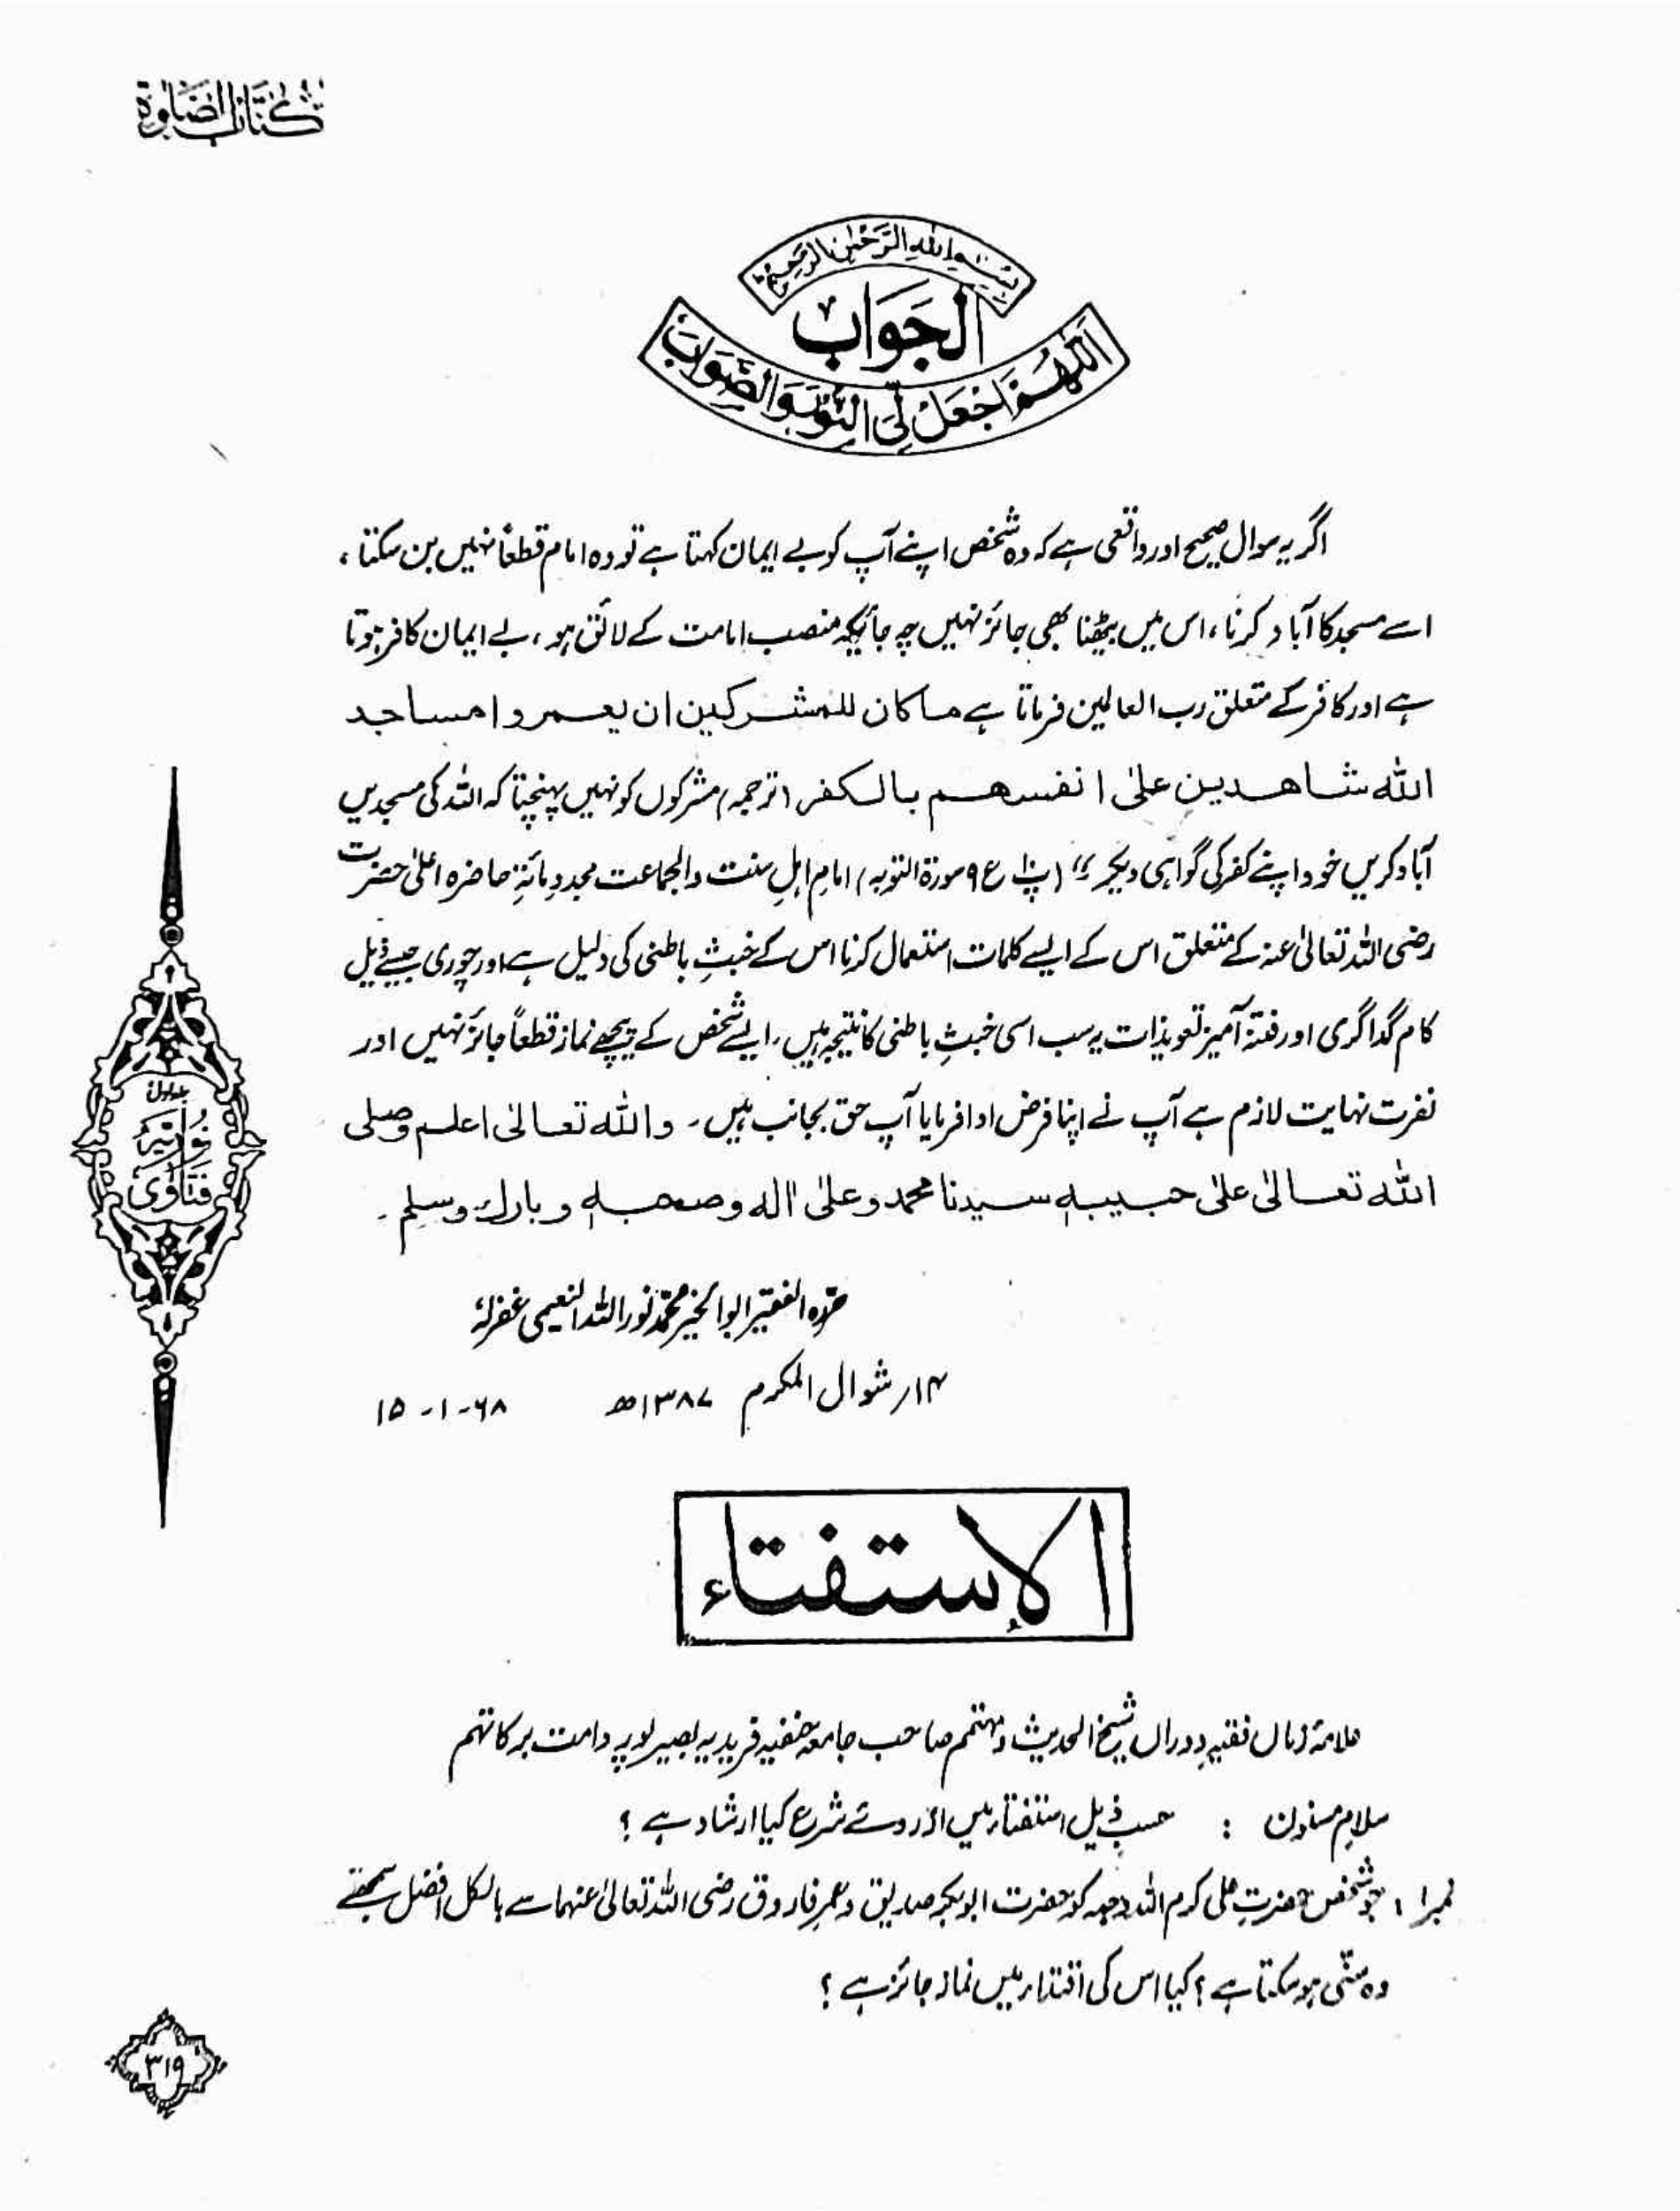 كتاب الصلوة
بسم الله الرحمن الرحيم
الجواب
اللهم اجعل لي النور والصواب
اگر یہ سوال صحیح اور واقعی ہے کہ وہ شخص اپنے آپ کو بے ایمان کہتا ہے تو وہ امام قطعاً نہیں بن سکتا،
اسے مسجد کا آباد کرنا، اس میں بیٹھنا بھی جائز نہیں چہ جائیکہ منصب امامت کے لائق ہو، بے ایمان کافر ہوتا
ہے اور کافر کے متعلق رب العالمین فرماتا ہے ما كان للمشركين ان يعمروا مساجد
الله شاهدين على انفسهم بالكفر (ترجمہ) مشرکوں کو نہیں پہنچتا کہ اللہ کی مسجدیں
آباد کریں خود اپنے کفر کی گواہی دیکر" (پ۱۰ ع ۹ سورۃ التوبہ) امامِ اہلِ سنت والجماعت مجددِ مائۃِ حاضرہ اعلیٰ حضرت
رضی اللہ تعالیٰ عنہ کے متعلق اس کے ایسے کلمات استعمال کرنا اس کے خبثِ باطنی کی دلیل ہے اور چوری جیسے ذلیل
کام گداگری اور فتنہ آمیز تعویذات یہ سب اسی خبثِ باطنی کا نتیجہ ہیں، ایسے شخص کے پیچھے نماز قطعاً جائز نہیں اور
نفرت نہایت لازم ہے آپ نے اپنا فرض ادا فرمایا آپ حق بجانب ہیں۔ والله تعالى اعلم وصلى
الله تعالىٰ علىٰ حبيبه سيدنا محمد وعلىٰ اٰله وصحبه وبارك وسلم۔
حرّرہ الفقیر ابوالخیر محمد نور اللہ النعیمی غفرلہٗ
۱۴؍ شوال المکرم ۱۳۸۷ھ ۱۵-۱-۶۸
جلد اول
نوریہ
فتاویٰ
الاستفتاء
علامۂ زماں فقیہِ دوراں شیخ الحدیث و مہتمم صاحب جامعہ حنفیہ فریدیہ بصیرپور دامت برکاتہم
سلام مسنون : حسبِ ذیل استفتاء میں ازروئے شرع کیا ارشاد ہے ؟
نمبر ۱ : جو شخص حضرتِ علی کرم اللہ وجہہ کو حضرت ابوبکر صدیق و عمرِ فاروق رضی اللہ تعالیٰ عنہما سے بالکل افضل سمجھے
وہ سنّی ہو سکتا ہے ؟ کیا اس کی اقتداء میں نماز جائز ہے ؟
۳۱۹